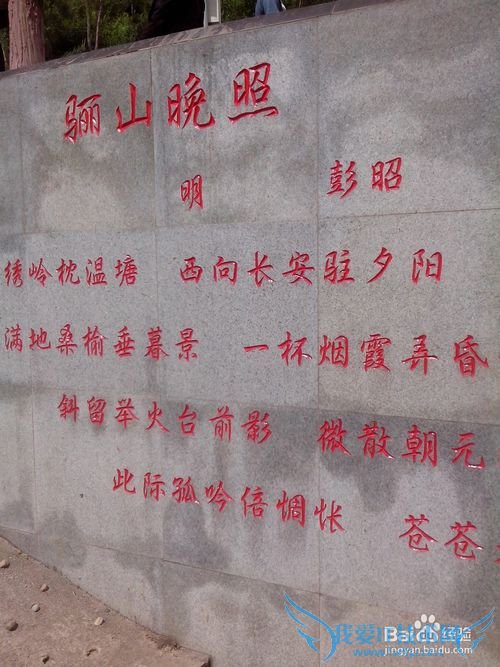 骊山晚照
明 彭昭
绣岭枕温塘 西向长安驻夕阳
满地桑榆垂暮景 一杯烟霞弄昏
斜留举火台前影 微散朝元
此际孤吟倍惆怅 苍苍
Baidu 经验
jingyan.baidu.com